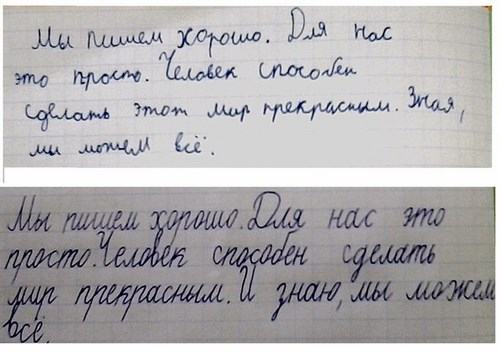 Мы пишем хорошо. Для нас
это просто. Человек способен
сделать этот мир прекрасным. Зная,
мы можем всё.
Мы пишем хорошо. Для нас это
просто. Человек способен сделать
мир прекрасным. И знаю, мы можем
всё.